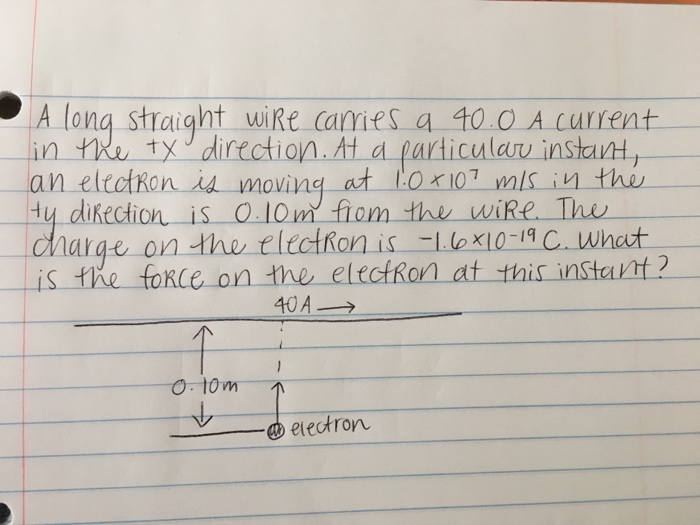 A long straight wire carries a 40.0 A current
in the +x direction. At a particular instant,
an electron is moving at 1.0 x 10⁷ m/s in the
+y direction is 0.10m from the wire. The
charge on the electron is -1.6 x 10-19 C. What
is the force on the electron at this instant?
40 A →
0.10m
electron